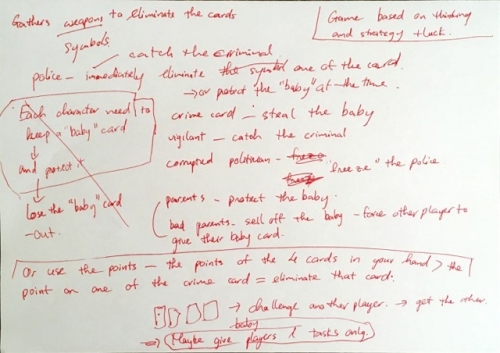 Gathers weapons to eliminate the cards
symbols
Game based on thinking
and strategy + luck.
catch the criminal.
police - immediately eliminate the symbol one of the card.
→ or protect the "baby" at the time.
Each character need to
keep a "baby" card
and protect it
lose the "baby" card
- out.
crime card - steal the baby
vigilant - catch the criminal
corrupted politician - freeze
freeze "the police
parents - protect the baby.
bad parents - sell off the baby - force other player to
give their baby card.
Or use the points - the points of the 4 cards in your hand > the
point on one of the crime card = eliminate that card.
→ challenge another player. → get the other
baby
⇒ Maybe give players 1 tasks only.